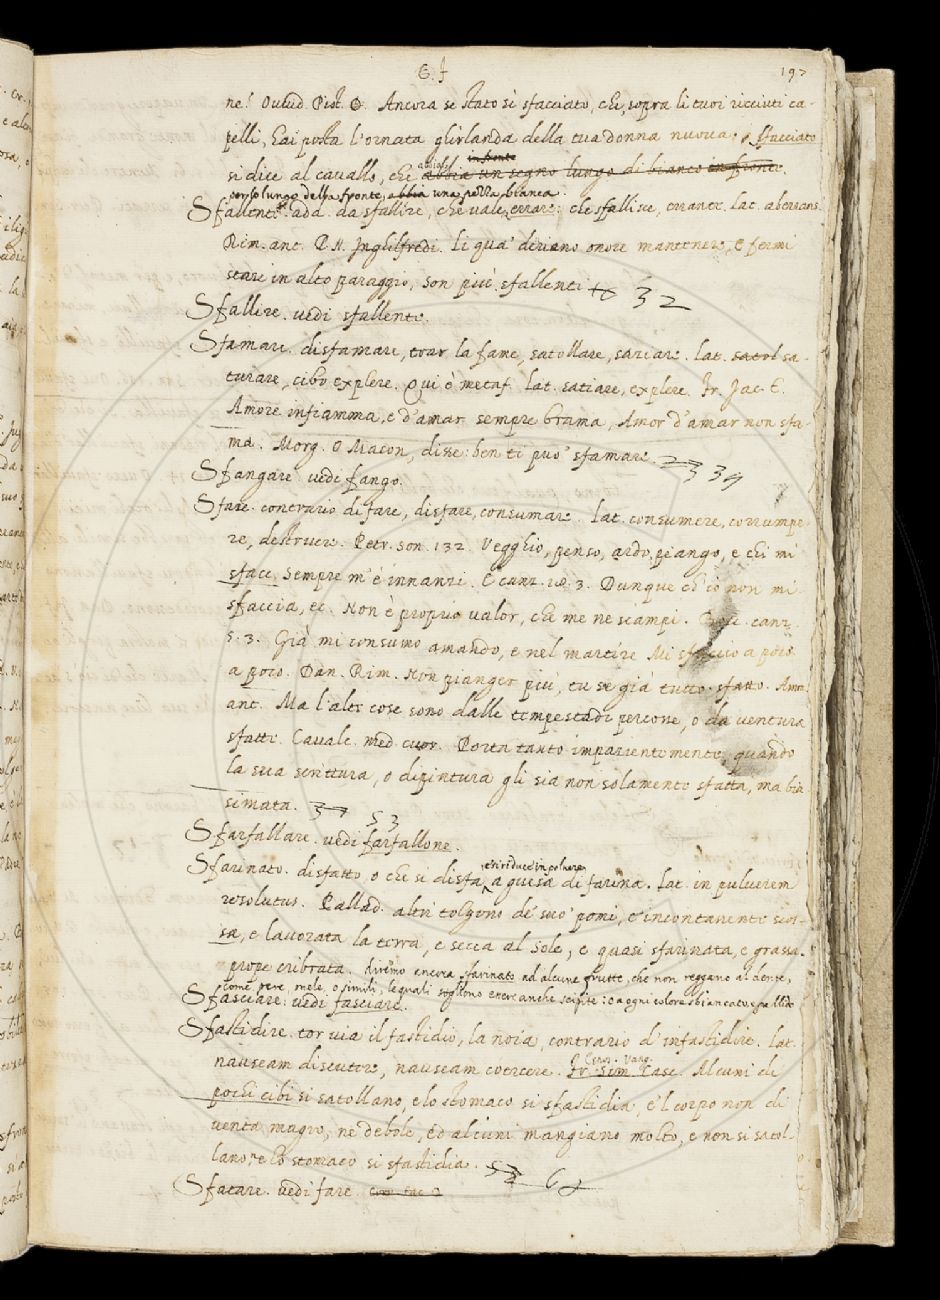 S. f. 197
ne! Ovvid. Pist. O. Ancora se stato sì sfacciato, che, sopra li tuoi ricciuti ca-
pelli, hai posta l'ornata ghirlanda della tua donna nuova. sfacciato
in fronte
si dice al cavallo, che abbia abbia un segno lungo di bianco in fronte.
per lo lungo della fronte, abbia una pezza bianca.
Sfallente. add. da sfallire, che vale, errare: che sfallisce, errante. lat. aberrans.
Rim. ant. P. N. Inghilfredi. Li qua' deviano onore mantenere, E fermi
stare in alto paraggio, Son più sfallenti 32
Sfallire. vedi sfallente.
Sfamare. disfamare, torr la fame, satollare, saziare. lat. satol sa-
turare, cibo explere. Qui è metaf. lat. satiare, explere. Fr. Jac. T.
Amore infiamma, e d'amar sempre brama, Amor d'amar non sfa-
ma. Morg. O Macon, disse: ben ti può sfamare. 39
Sfangare vedi fango.
Sfare. contrario di fare, disfare, consumare. lat. consumere, corrumpe-
re, destruere. Petr. Son. 132. Vegghio, penso, ardo, piango, e chi mi
sface, Sempre m'è innanzi. E canz. 18. 3. Dunque ch' io non mi
sfaccia, ec. Non è proprio valor, che me ne scampi. Bocc. canz.
5. 3. Già mi consumo amando, e nel martire Mi sfaccio a poco
a poco. Dan. Rim. Non pianger più, tu se già tutto sfatto. Amm.
ant. Ma l'altre cose sono dalle tempestadi percosse, o da ventura
sfatte. Cavalc. med. cuor. Porta tanto impazientemente, quando
la sua scrittura, o dipintura gli sia non solamente sfatta, ma bia
simata. 53
Sfarfallare. vedi farfallone.
e si riduce in polvere
Sfarinato. disfatto, o che si disfa, a guisa di farina. lat. in pulverem
resolutus. Pallad. altri tolgono de' suo' pomi, e incontanente
sa, e lavorata la terra, e secca al Sole, e quasi sfarinata, e grassa.
prope cribrata. diremo ancora sfarinato ad alcune frutte, che non reggono al dente,
come pere, mele, o simili, le quali sogliono essere anche scipite: o a ogni colore sbiancato, e pallido
Sfasciare. vedi fasciare.
Sfastidire. tor via il fastidio, la noia, contrario d'infastidire. lat.
nauseam discutere, nauseam coercere. Fr. Sim. Casc. Alcuni di
pochi cibi si satollano, e lo stomaco si sfastidia, e 'l corpo non di
venta magro, nè debole, ed alcuni mangiano molto, e non si satol-
lano, e lo stomaco si sfastidia.
Sfatare. vedi fare.